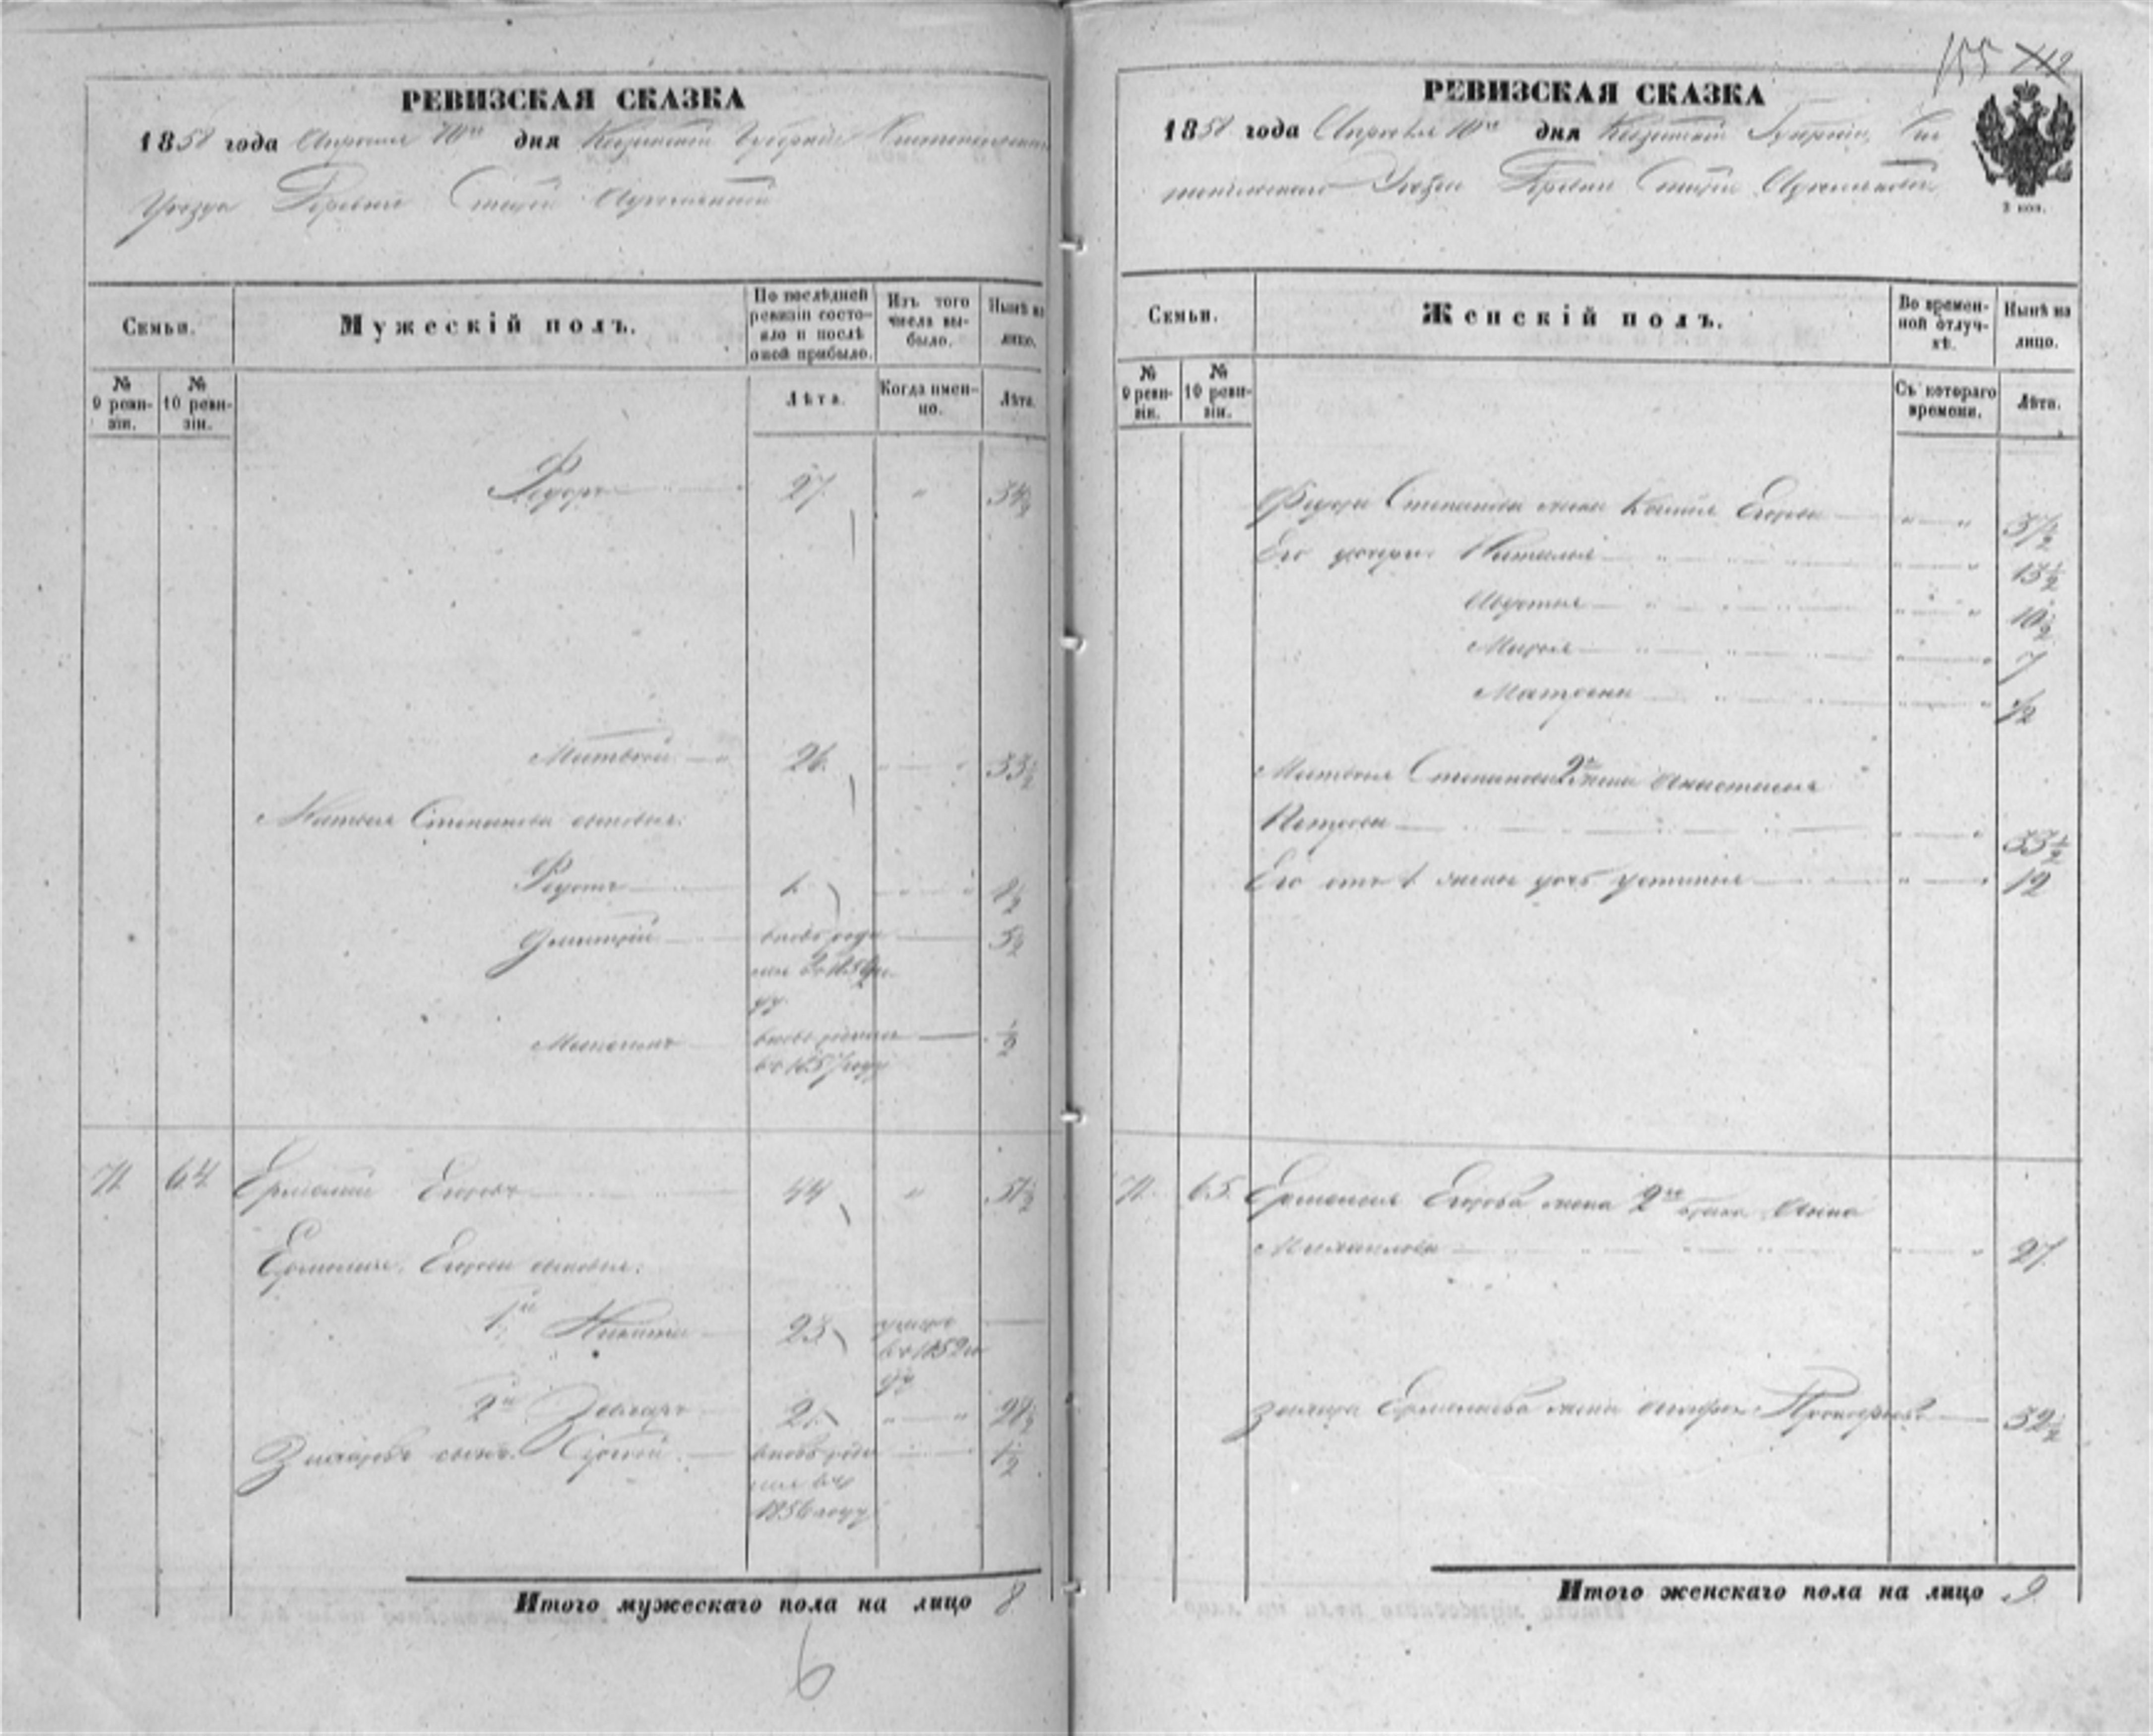 РЕВИЗСКАЯ СКАЗКА
1858 года Апреля 10го дня Казанской Губернiи Чистопольскаго
Уезда Деревни Старой
Семьи.
Мужескiй полъ.
По послѣдней ревизiи состояло и послѣ оной прибыло.
Изъ того числа выбыло.
Нынѣ на лицо.
№ 9 ревизiи.
№ 10 ревизiи.
Лѣта.
Когда именно.
Лѣта.
Федоръ 27 " 34½
Матвей 26 " " 33½
Матвея Степанова сыновья:
Федотъ 1 " " 8½
Дмитрiй вновь роди 5½
въ го
ду
вновь рожденъ ½
въ 1857 году
71 64 Ермолай Егоровъ 44 " 51½
Ермолая Егорова сыновья:
1й Никита 23 умеръ
въ 1852 го
ду
2й Захаръ 21 " " 28½
Захара сынъ Сергей вновь роди 1½
лся въ
1856 году
Итого мужескаго пола на лицо 8
6
155 112
РЕВИЗСКАЯ СКАЗКА
1858 года Апреля 10го дня Казанской Губернiи, Чис
топольскаго Уезда Деревни Старой
3 коп.
Семьи.
Женскiй полъ.
Во временной отлучкѣ.
Нынѣ на лицо.
№ 9 ревизiи.
№ 10 ревизiи.
Съ котораго времени.
Лѣта.
Федора Степанова жена Егорова " " 37½
Его дочери Наталья " " 13½
Авдотья " " 10½
Марья " " 7
Матрена " " ½
Матвея Степанова 2я жена Анастасия
Петрова " " 33½
Его отъ 1 жены дочь Устинья " " 12
71. 65. Ермолая Егорова жена 2го брака Анна
Михайлова " " 27
Захара Ермолаева жена Прокофьева 32½
Итого женскаго пола на лицо 9